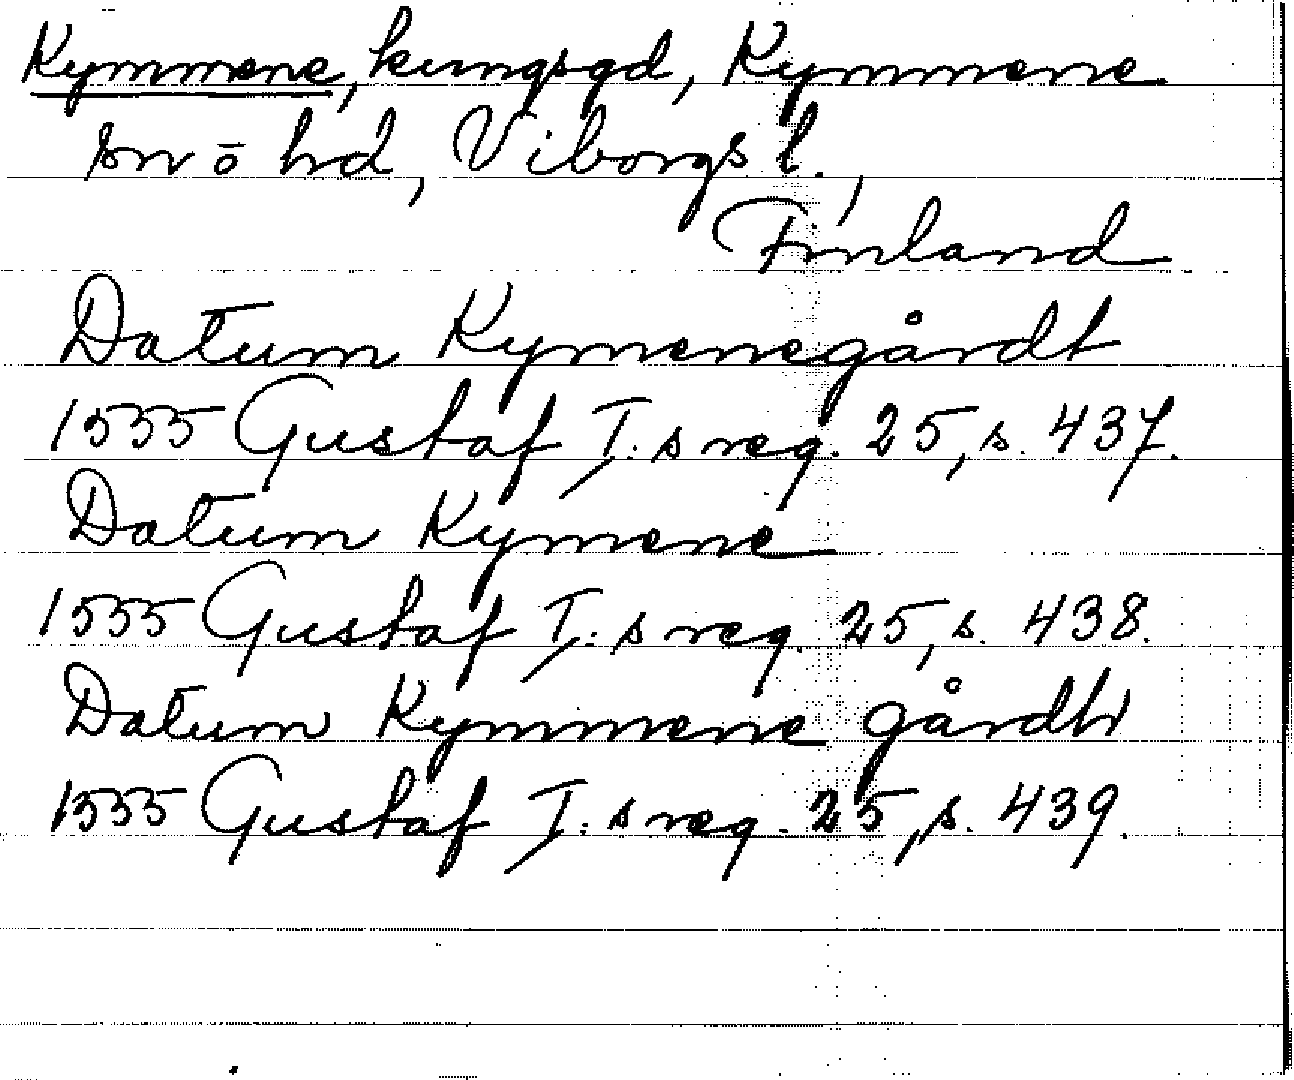 Kymmene, kungsgd, Kymmene
sn o hd, Viborgs l.,
Finland
Datum Kymenegårdt
1555 Gustaf I:s reg. 25, s. 437.
Datum Kymene
1555 Gustaf I:s reg. 25, s. 438.
Datum Kymmene gårdh
1555 Gustaf I:s reg. 25, s. 439.